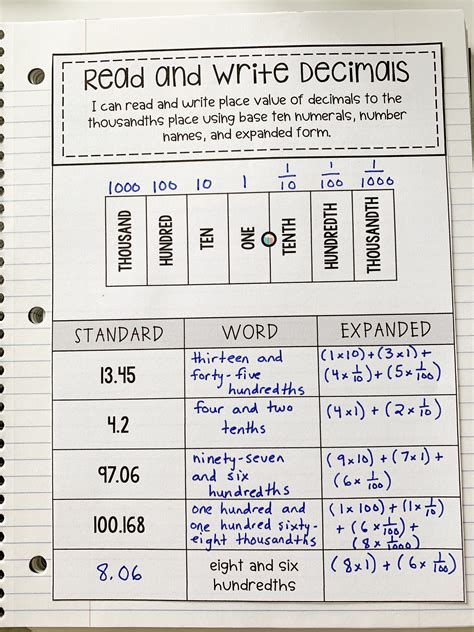 Read and Write Decimals
I can read and write place value of decimals to the
thousandths place using base ten numerals, number
names, and expanded form.
1000 100 10 1 1/10 1/100 1/1000
THOUSAND HUNDRED TEN ONE TENTH HUNDREDTH THOUSANDTH
STANDARD WORD EXPANDED
13.45
thirteen and
forty-five
hundredths
(1×10)+(3×1)+
(4×1/10)+(5×1/100)
4.2
four and two
tenths
(4×1)+(2×1/10)
97.06
ninety-seven
and six
hundredths
(9×10)+(7×1)+
(6×1/100)
100.168
one hundred and
one hundred sixty-
eight thousandths
(1×100)+(1×1/10)
+(6×1/100)+
(8×1/1000)
8.06
eight and six
hundredths
(8×1)+(6×1/100)